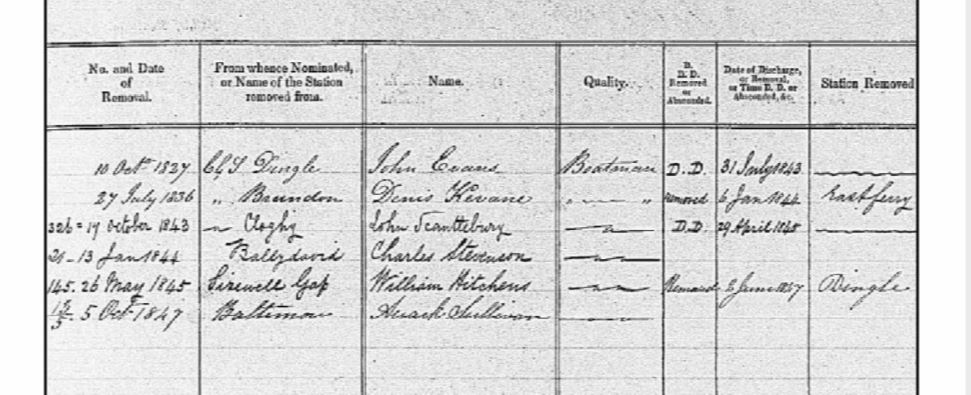 No. and Date of Removal. From whence Nominated, or Name of the Station removed from. Name. Quality. D. D. D. Removed or Absconded. Date of Discharge, or Removal, or Time D. D. or Absconded, &c. Station Removed
10 Octr 1827 John Evans Boatman D.D. 31 July 1843
27 July 1836 „ Denis Kevane „ „ removed 6 Jan 1844 East ferry
326 = 17 October 1843 Cloghy John D.D. 29 April 1845
21 - 13 Jan 1844 Ballydavid Charles Stevenson
145. 26 May 1845 Sizewell Gap William Hitchens Removed 8 June 1857 Dingle
5 Oct 1847 Baltimore Sullivan